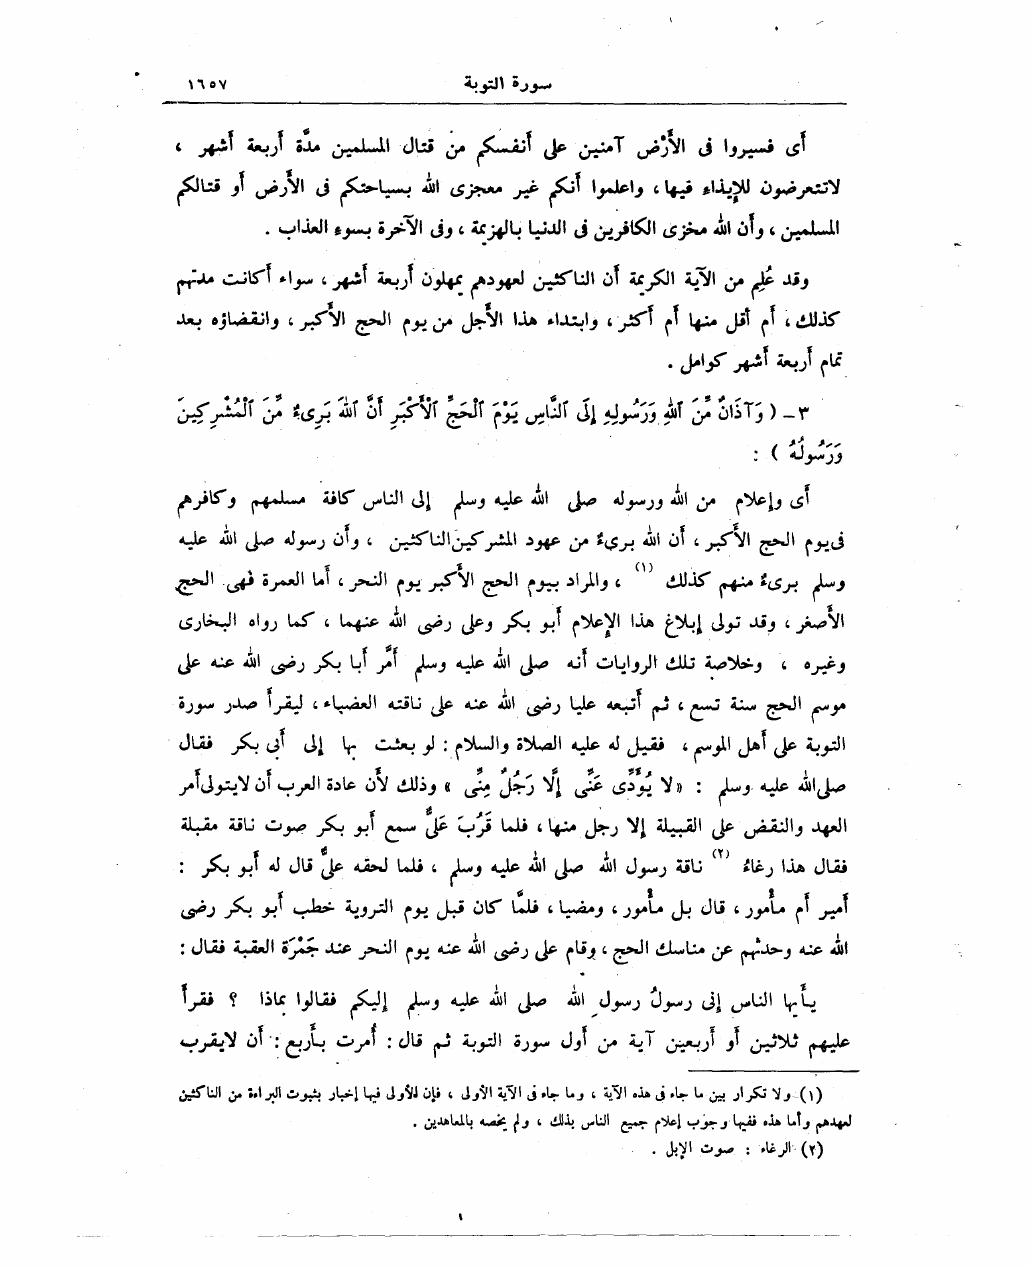 سورة التوبة ١٦٥٧
أى فسيروا فى الأَرْض آمنين على أنفسكم من قتال المسلمين مدَّة أربعة أشهر ،
لاتتعرضون للإيذاء فيها ، واعلموا أنكم غير معجزى الله بسياحتكم فى الأرض أو قتالكم
المسلمين ، وأن الله مخزى الكافرين فى الدنيا بالهزيمة ، وفى الآخرة بسوء العذاب .
وقد عُلِم من الآية الكريمة أن الناكثين لعهودهم يمهلون أربعة أشهر ، سواء أكانت مدتهم
كذلك ، أم أقل منها أم أكثر ، وابتداء هذا الأجل من يوم الحج الأكبر ، وانقضاؤه بعد
تمام أربعة أشهر كوامل .
٣ - ( وَآذَانٌ مِّنَ ٱللهِ وَرَسُولِهِ إِلَى ٱلنَّاسِ يَوْمَ ٱلْحَجِّ ٱلْأَكْبَرِ أَنَّ ٱللهَ بَرِىءٌ مِّنَ ٱلْمُشْرِكِينَ
وَرَسُولُهُ ) :
أى وإعلام من الله ورسوله صلى الله عليه وسلم إلى الناس كافة مسلمهم وكافرهم
فى يوم الحج الأكبر ، أن الله برىءٌ من عهود المشركين الناكثين ، وأن رسوله صلى الله عليه
وسلم برىءٌ منهم كذلك (١) ، والمراد بيوم الحج الأكبر يوم النحر ، أما العمرة فهى الحج
الأصغر ، وقد تولى إبلاغ هذا الإعلام أبو بكر وعلى رضى الله عنهما ، كما رواه البخارى
وغيره ، وخلاصة تلك الروايات أنه صلى الله عليه وسلم أمَّر أبا بكر رضى الله عنه على
موسم الحج سنة تسع ، ثم أتبعه عليا رضى الله عنه على ناقته العضباء ، ليقرأ صدر سورة
التوبة على أهل الموسم ، فقيل له عليه الصلاة والسلام : لو بعثت بها إلى أبى بكر فقال
صلى الله عليه وسلم : « لا يُؤَدِّى عَنِّى إِلَّا رَجُلٌ مِنِّى » وذلك لأن عادة العرب أن لايتولى أمر
العهد والنقض على القبيلة إلا رجل منها ، فلما قَرُبَ عَلىٌّ سمع أبو بكر صوت ناقة مقبلة
فقال هذا رغاءُ (٢) ناقة رسول الله صلى الله عليه وسلم ، فلما لحقه علىٌّ قال له أبو بكر :
أمير أم مأْمور ، قال بل مأْمور ، ومضيا ، فلمَّا كان قبل يوم التروية خطب أبو بكر رضى
الله عنه وحدثهم عن مناسك الحج ، وقام على رضى الله عنه يوم النحر عند جَمْرَة العقبة فقال :
يـأيها الناس إنى رسولُ رسول الله صلى الله عليه وسلم إليكم فقالوا بماذا ؟ فقرأ
عليهم ثلاثين أو أربعين آية من أول سورة التوبة ثم قال : أُمرت بـأربع : أن لايقرب
(١) ولا تكرار بين ما جاء فى هذه الآية ، وما جاء فى الآية الأولى ، فإن الأولى فيها إخبار بثبوت البراءة من الناكثين
لعهدهم وأما هذه ففيها وجوب إعلام جميع الناس بذلك ، ولم يخصه بالمعاهدين .
(٢) الرغاء : صوت الإبل .